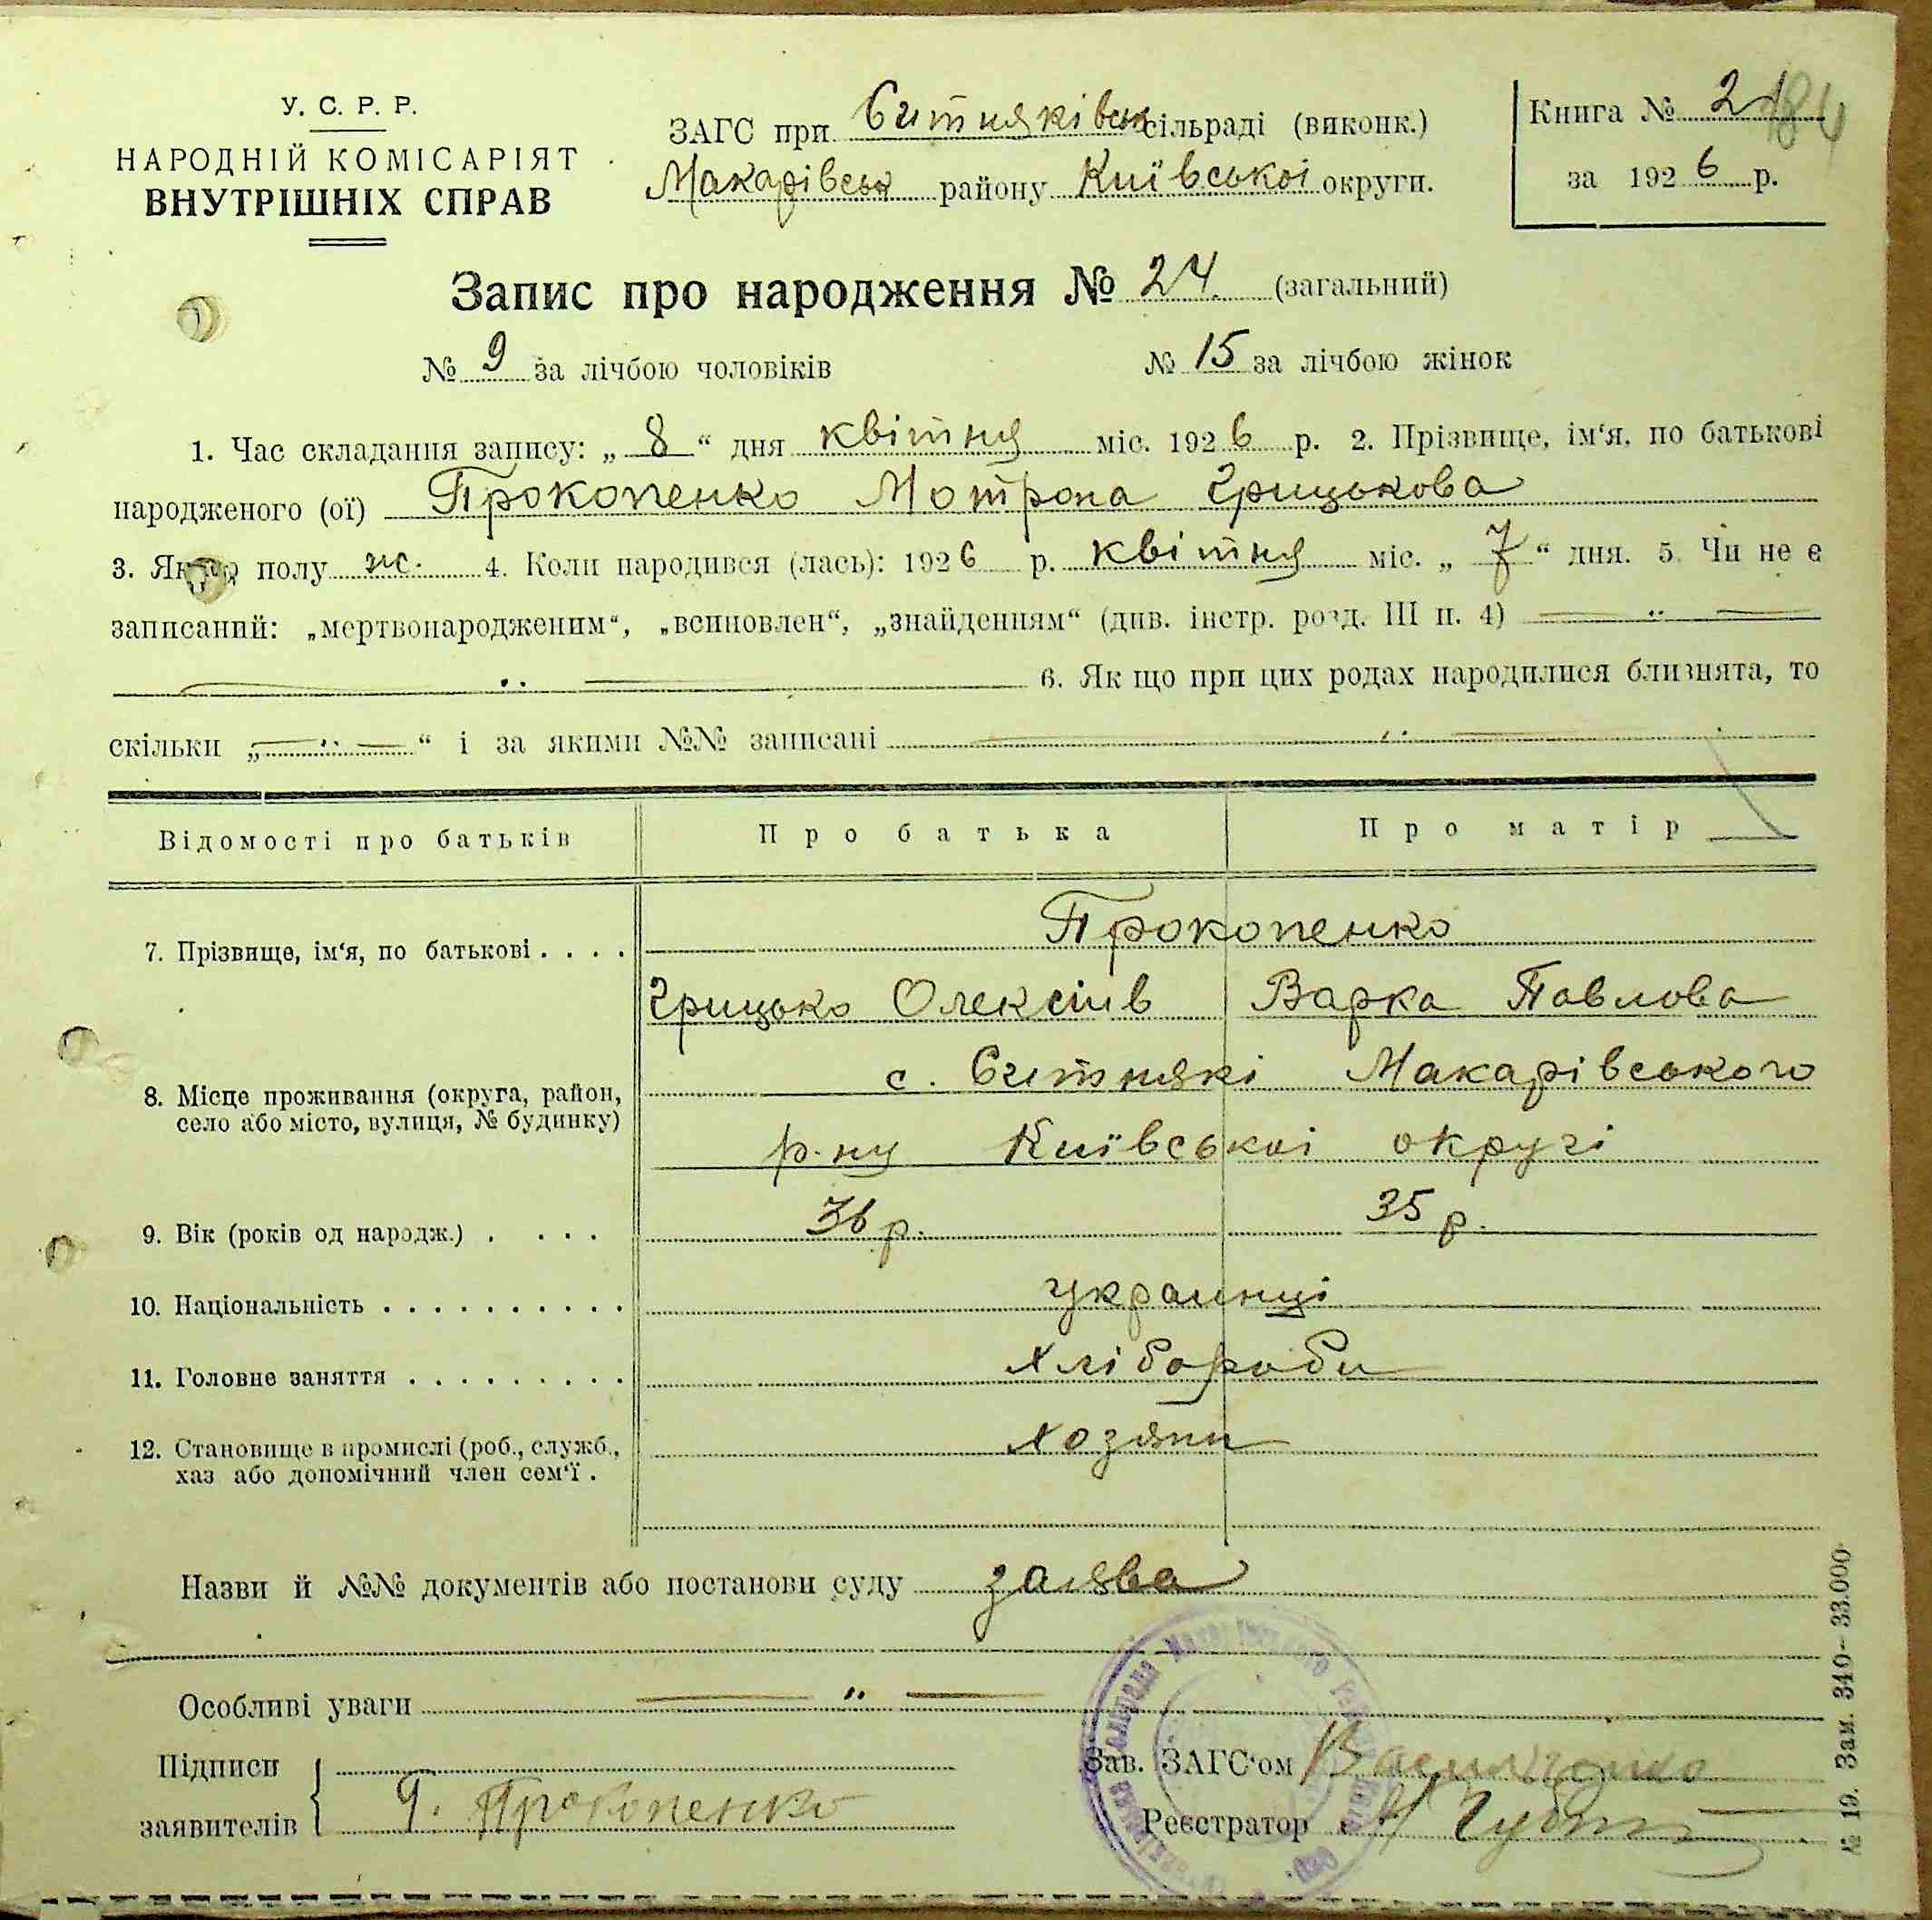 У. С. Р. Р.
НАРОДНІЙ КОМІСАРІЯТ
ВНУТРІШНІХ СПРАВ
ЗАГС при Ситняківськ сільраді (виконк.)
Макарівськ району Київськоі округи.
Книга № 2
184
за 1926 р.
Запис про народження № 24 (загальний)
№ 9 за лічбою чоловіків № 15 за лічбою жінок
1. Час складання запису: „ 8 “ дня квітня міс. 1926 р. 2. Прізвище, ім‘я, по батькові
народженого (ої) Прокопенко Мотрона Грицькова
3. Якого полу ж. 4. Коли народився (лась): 1926 р. квітня міс. „ 7 “ дня. 5. Чи не є
записаний: „мертвонародженим“, „всиновлен“, „знайденням“ (див. інстр. розд. III п. 4) — „ —
— „ — 6. Як що при цих родах народилися близнята, то
скільки „— „ —“ і за якими №№ записані — „ —
Відомості про батьків Про батька Про матір
7. Прізвище, ім‘я, по батькові . . . . Прокопенко
Грицько Олексіив Варка Павлова
8. Місце проживання (округа, район, село або місто, вулиця, № будинку) с. Ситнякі Макарівського
р-ну Київськоі округі
9. Вік (років од народж.) . . . . 36 р. 35 р.
10. Національність . . . . . . . . . . украинці
11. Головне заняття . . . . . . . . . хлібороби
12. Становище в промислі (роб., служб., хаз або допомічний член сем‘ї . хозяни
Назви й №№ документів або постанови суду заява
Особливі уваги — „ —
Підписи
заявителів Г. Прокопенко
Зав. ЗАГС‘ом
Реєстратор
№ 19. Зам. 340—33.000